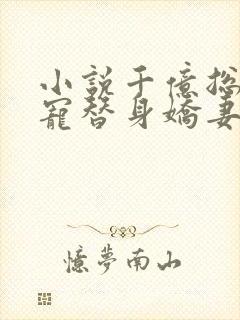 小說千億總
寵替身嬌妻
憶夢南山